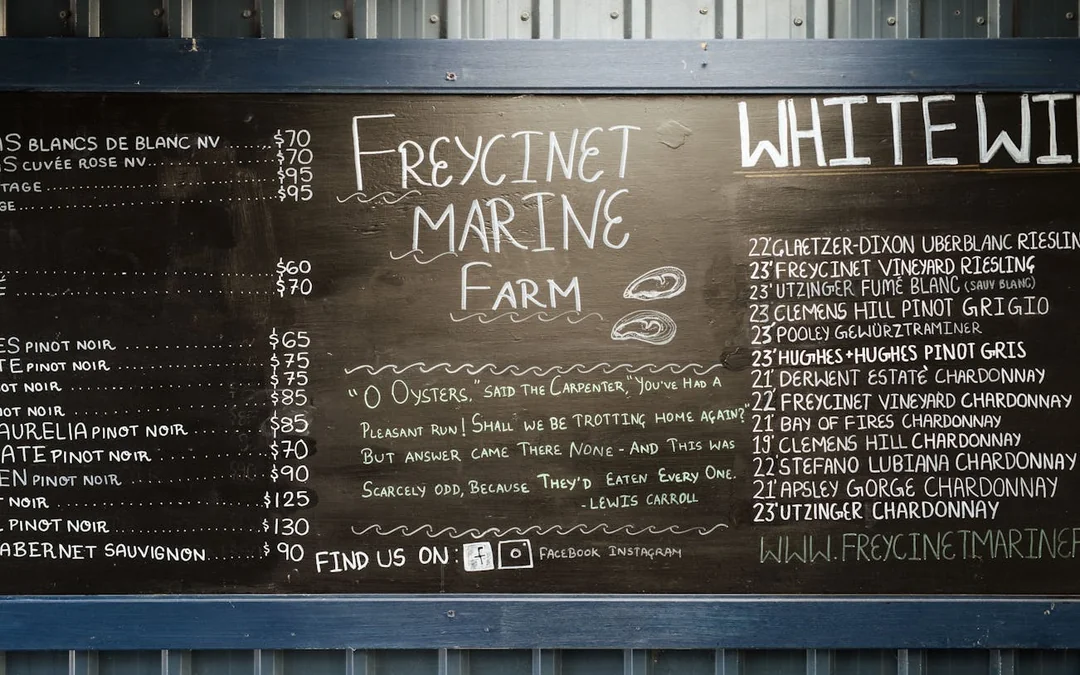 BLANCS DE BLANC NV ...... $70
CUVÉE ROSE NV ...... $70
TAGE ...... $95
GE ...... $95
...... $60
É ...... $70
ES PINOT NOIR ...... $65
TE PINOT NOIR ...... $75
OT NOIR ...... $75
OT NOIR ...... $85
AURELIA PINOT NOIR ...... $85
ATE PINOT NOIR ...... $70
EN PINOT NOIR ...... $90
T NOIR ...... $125
PINOT NOIR ...... $130
ABERNET SAUVIGNON ...... $90
FREYCINET
MARINE
FARM
"O OYSTERS," SAID THE CARPENTER, "YOU'VE HAD A
PLEASANT RUN! SHALL WE BE TROTTING HOME AGAIN?"
BUT ANSWER CAME THERE NONE - AND THIS WAS
SCARCELY ODD, BECAUSE THEY'D EATEN EVERY ONE.
-LEWIS CARROLL
FIND US ON: f FACEBOOK INSTAGRAM
WHITE WI
22' GLAETZER-DIXON UBERBLANC RIESLIN
23' FREYCINET VINEYARD RIESLING
23' UTZINGER FUMÉ BLANC (SAUV BLANC)
23' CLEMENS HILL PINOT GRIGIO
23' POOLEY GEWÜRZTRAMINER
23' HUGHES + HUGHES PINOT GRIS
21' DERWENT ESTATE CHARDONNAY
22' FREYCINET VINEYARD CHARDONNAY
21' BAY OF FIRES CHARDONNAY
19' CLEMENS HILL CHARDONNAY
22' STEFANO LUBIANA CHARDONNAY
21' APSLEY GORGE CHARDONNAY
23' UTZINGER CHARDONNAY
WWW.FREYCINETMARINEF